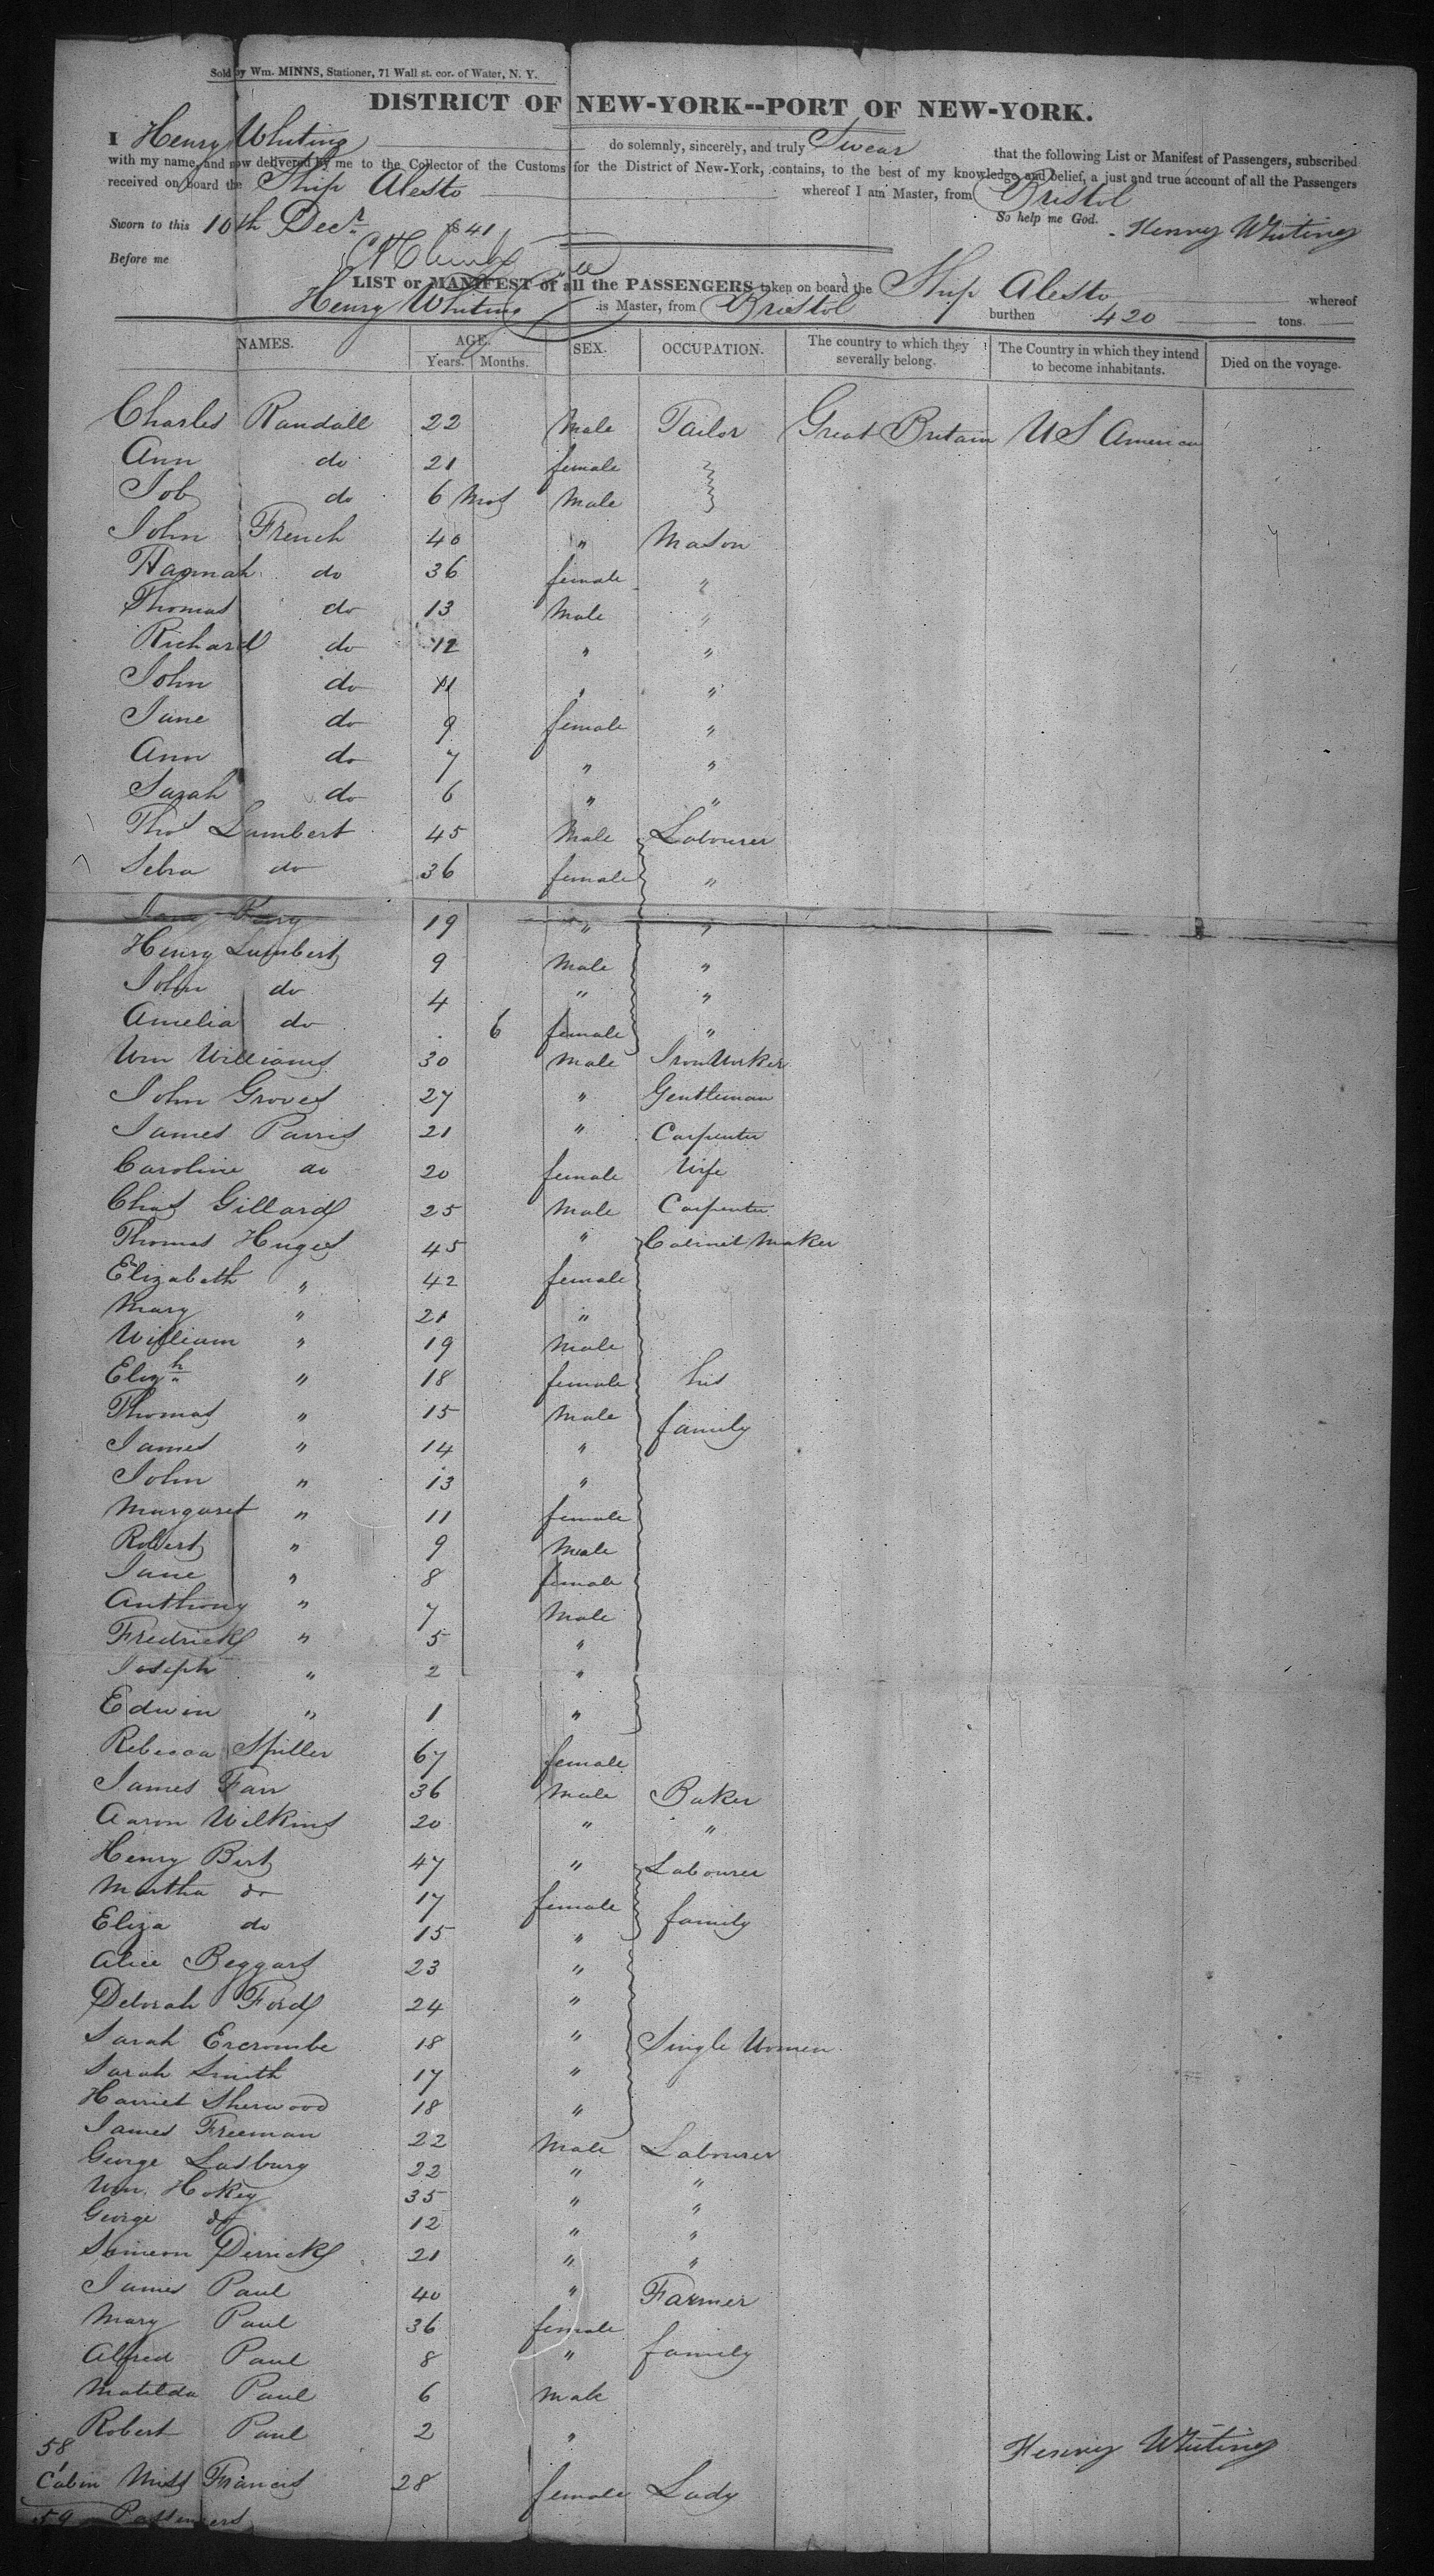 Sold by Wm. MINNS, Stationer, 71 Wall st. cor. of Water, N. Y.
DISTRICT OF NEW-YORK--PORT OF NEW-YORK.
I Henry Whiting do solemnly, sincerely, and truly Swear that the following List or Manifest of Passengers, subscribed
with my name, and now delivered by me to the Collector of the Customs for the District of New-York, contains, to the best of my knowledge and belief, a just and true account of all the Passengers
received on board the Ship Alesto whereof I am Master, from Bristol
Sworn to this 10th Decr. 1841 So help me God. Henry Whiting
Before me
LIST or MANIFEST of all the PASSENGERS taken on board the Ship Alesto whereof
Henry Whiting is Master, from Bristol burthen 420 tons.
NAMES. AGE. Years. Months. SEX. OCCUPATION. The country to which they severally belong. The Country in which they intend to become inhabitants. Died on the voyage.
Charles Randall 22 Male Tailor Great Britain US America
Ann do 21 female
Job do 6 Mos Male
John French 40 " Mason
Hannah do 36 female "
Thomas do 13 Male "
Richard do 12 " "
John do 11 " "
Jane do 9 female "
Ann do 7 " "
Sarah do 6 " "
Thos Lambert 45 Male Labourer
Sebra do 36 female "
19 " "
Henry Lambert 9 Male "
John do 4 " "
Amelia do 6 female "
Wm Williams 30 Male Iron Worker
John Groves 27 " Gentleman
James Parris 21 " Carpenter
Caroline do 20 female Wife
Chas Gillard 25 Male Carpenter
Thomas Huges 45 " Cabinet Maker
Elizabeth " 42 female
Mary " 21 "
William " 19 Male
Elizh " 18 female his
Thomas " 15 Male family
James " 14 "
John " 13 "
Margaret " 11 female
Robert " 9 Male
Jane " 8 female
Anthony " 7 Male
Fredrick " 5 "
Joseph " 2 "
Edwin " 1 "
Rebecca Spiller 67 female
James Farr 36 Male Baker
Aaron Wilkins 20 " "
Henry Birt 47 " Labourer
Martha do 17 female family
Eliza do 15 "
Alice Beggars 23 "
Deborah Ford 24 "
Sarah Ercrombe 18 " Single Women
Sarah Smith 17 "
Harriet Sherwood 18 "
James Freeman 22 Male Labourer
George Ladbury 22 " "
Wm. Hokey 35 " "
George do 12 " "
Simeon Derrick 21 " "
James Paul 40 " Farmer
Mary Paul 36 female family
Alfred Paul 8 "
Matilda Paul 6 Male
Robert Paul 2 "
58 Henry Whiting
1 Cabin Miss Francis 28 female Lady
59 Passengers